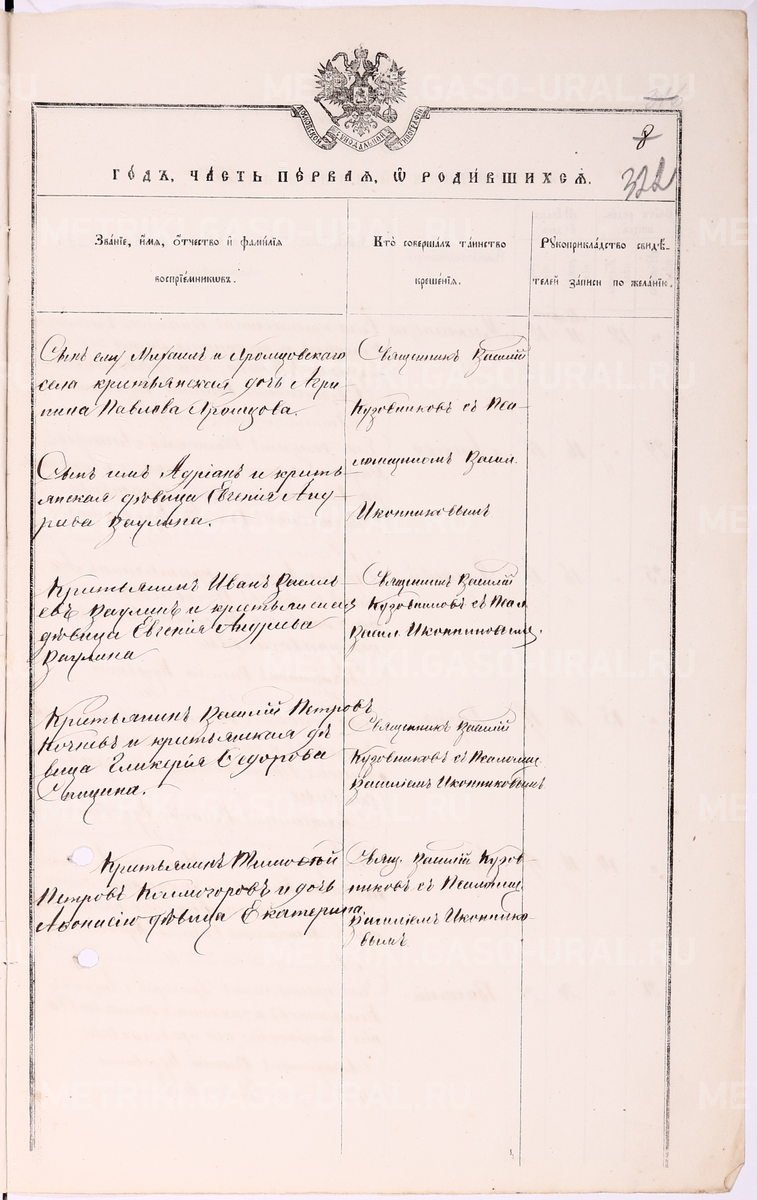 МОСКОВСКОЙ СѴНОДАЛЬНОЙ ТИПОГРАФІИ
8
322
ГОДЪ, ЧАСТЬ ПЕРВАЯ, Ѡ РОДИВШИХСЯ.
Званіе, имя, отчество и фамилія
воспріемниковъ.
Кто совершалъ таинство
крещенія.
Рукоприкладство свидѣ-
телей записи по желанію.
Сынъ ему Михаилъ и
села крестьянская дочь Агри-
пина Павлова
Священникъ Василій
Кузовниковъ съ Пса-
ломщикомъ Васил.
Иконниковымъ
Сынъ имъ Адріанъ и кресть-
янская дѣвица Евгенія Анд-
реева Ваулина.
Крестьянинъ Иванъ Василь-
евъ Ваулинъ и крестьянская
дѣвица Евгенія Андреева
Ваулина
Священникъ Василій
Кузовниковъ съ Псал.
Васил. Иконниковымъ.
Крестьянинъ Василій Петровъ
и крестьянская дѣ-
вица Гликерія Ѳедорова
Священникъ Василій
Кузовниковъ съ Псаломщ.
Василіемъ Иконниковымъ
Крестьянинъ Тимоѳей
Петровъ и дочь
Аѳонасію дѣвица Екатерина
Свящ. Василій Кузов-
никовъ съ Псаломщ.
Василіемъ Иконнико-
вымъ
METRIKI.GASO-URAL.RU